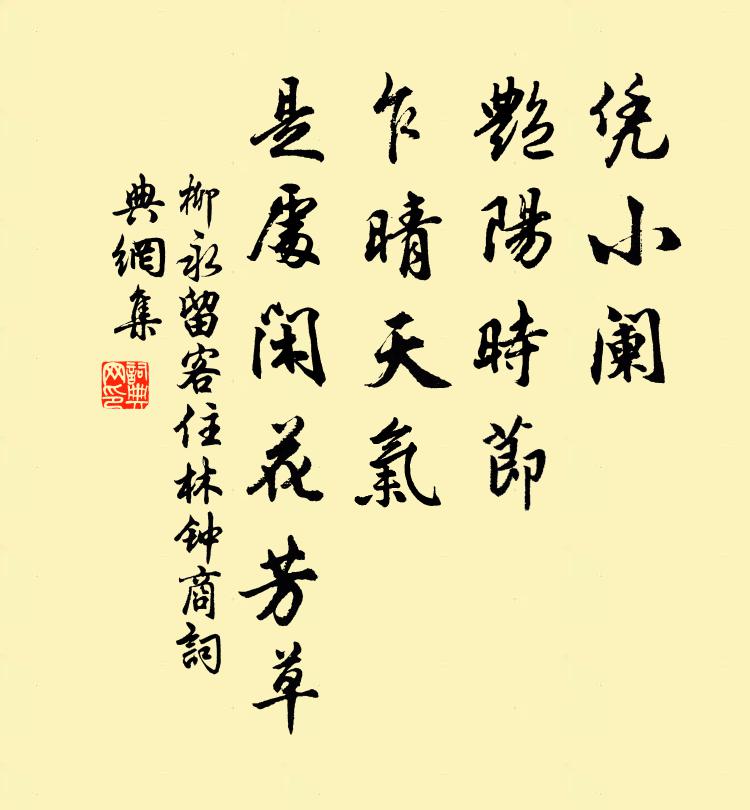 凭小阑
艷陽時節
乍晴天氣
是處閑花芳草
柳永留客住林钟商詞
典網集
詞典网印